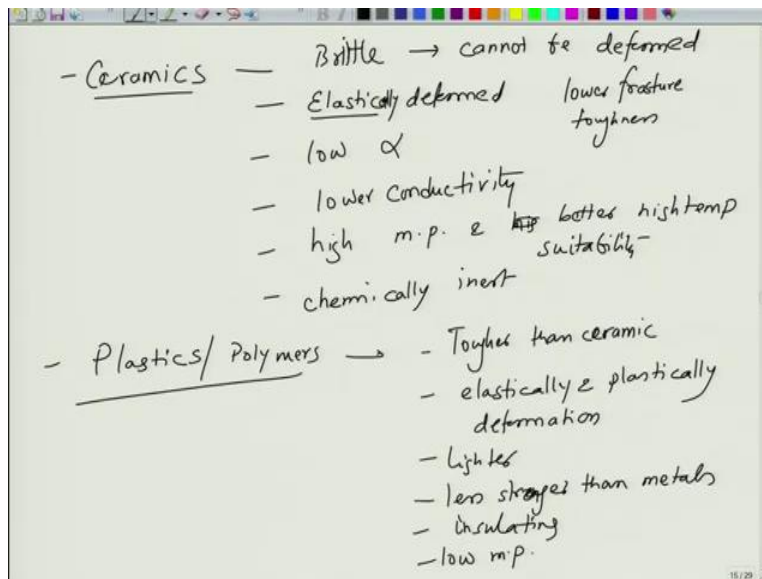 - Ceramics — Brittle → cannot be deformed
— Elastically deformed lower fracture
toughness
— low α
— lower conductivity
— high m.p. & better high temp
suitability
— chemically inert
- Plastics/ Polymers → - Tougher than ceramic
- elastically & plastically
deformation
- Lighter
- less stronger than metals
- insulating
- low m.p.
15/29